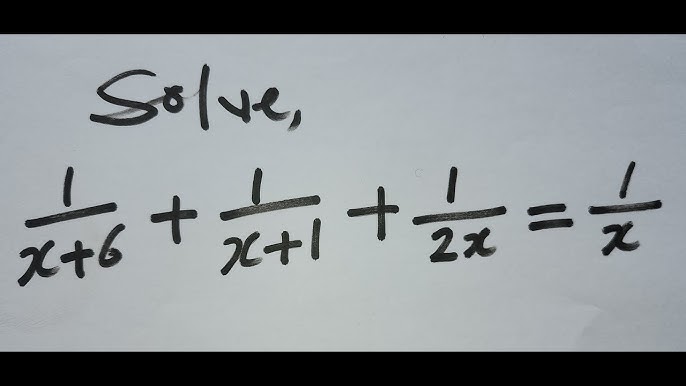 Solve,
1/(x+6) + 1/(x+1) + 1/(2x) = 1/x